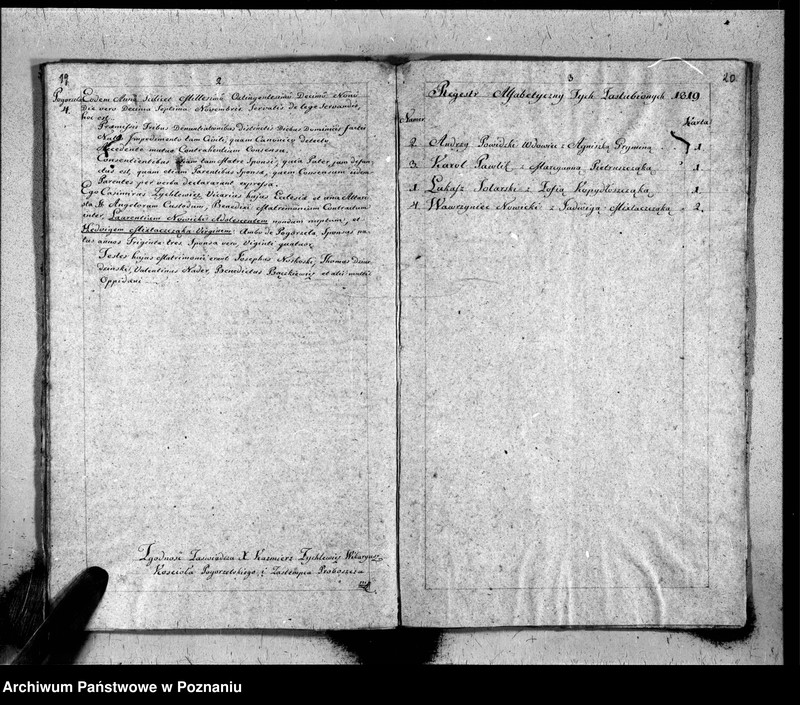 19
2
Pogorzela Eodem Anno scilicet Millesimo Octingentesimo Decimo Nono
4. Die vero Decima Septima Novembris Servatis de lege Servandis,
hoc est
Præmissis Tribus Denuntiationibus Distinctis Diebus Dominicis factis
Nullo Impedimento tam Civili, quam Canonico detecto
Accedente mutuo Contrahentium Consensu
Consentientibus etiam tam Matre Sponsi, quia Pater jam defun-
ctus est, quam etiam Parentibus Sponsæ, quem Consensum iidem
Parentes per verba declararunt expressa.
Ego Casimirus Zychlewicz, Vicarius hujus Ecclesiæ et una Altari-
sta SS Angelorum Custodum, Benedixi Matrimonium Contractum
inter Laurentium Nowicki Adolescentem nondum nuptum, et
Hedvigem Mixtaczeqka Virginem Ambo de Pogorzela Sponsus na-
tus annos Triginta tres Sponsa vero, Viginti quatuor
Testes hujus Matrimonii erant Josephus Noskoski, Thomas
Valentinus Nader, Benedictus et alii multi
Oppidani
Zgodność Zaświadcza X Kazmierz Zychlewicz Wikaryusz
Kościoła Pogorzelskiego i Zastempca Proboszcza
3
20
Regestr Alfabetyczny Tych Zaślubionych 1819
Numer
Karta
2. Andrzy Powidzki Wdowiec z Agniszką Gryminą 1
3. Karol Pawlić z Maryanną Pietruszcząką 1
1. Łukasz Polarski z Zofią Kopydłoszcząką 1
4. Wawrzyniec Nowicki z Jadwigą Mixtaczeqką 2.
Archiwum Państwowe w Poznaniu